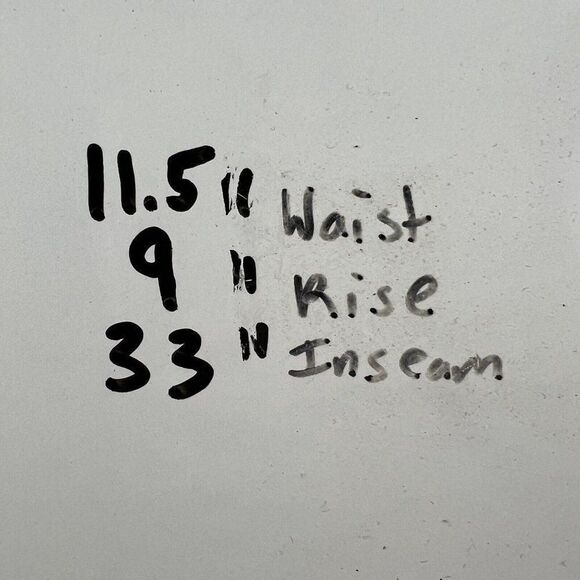 11.5" Waist
9" Rise
33" Inseam